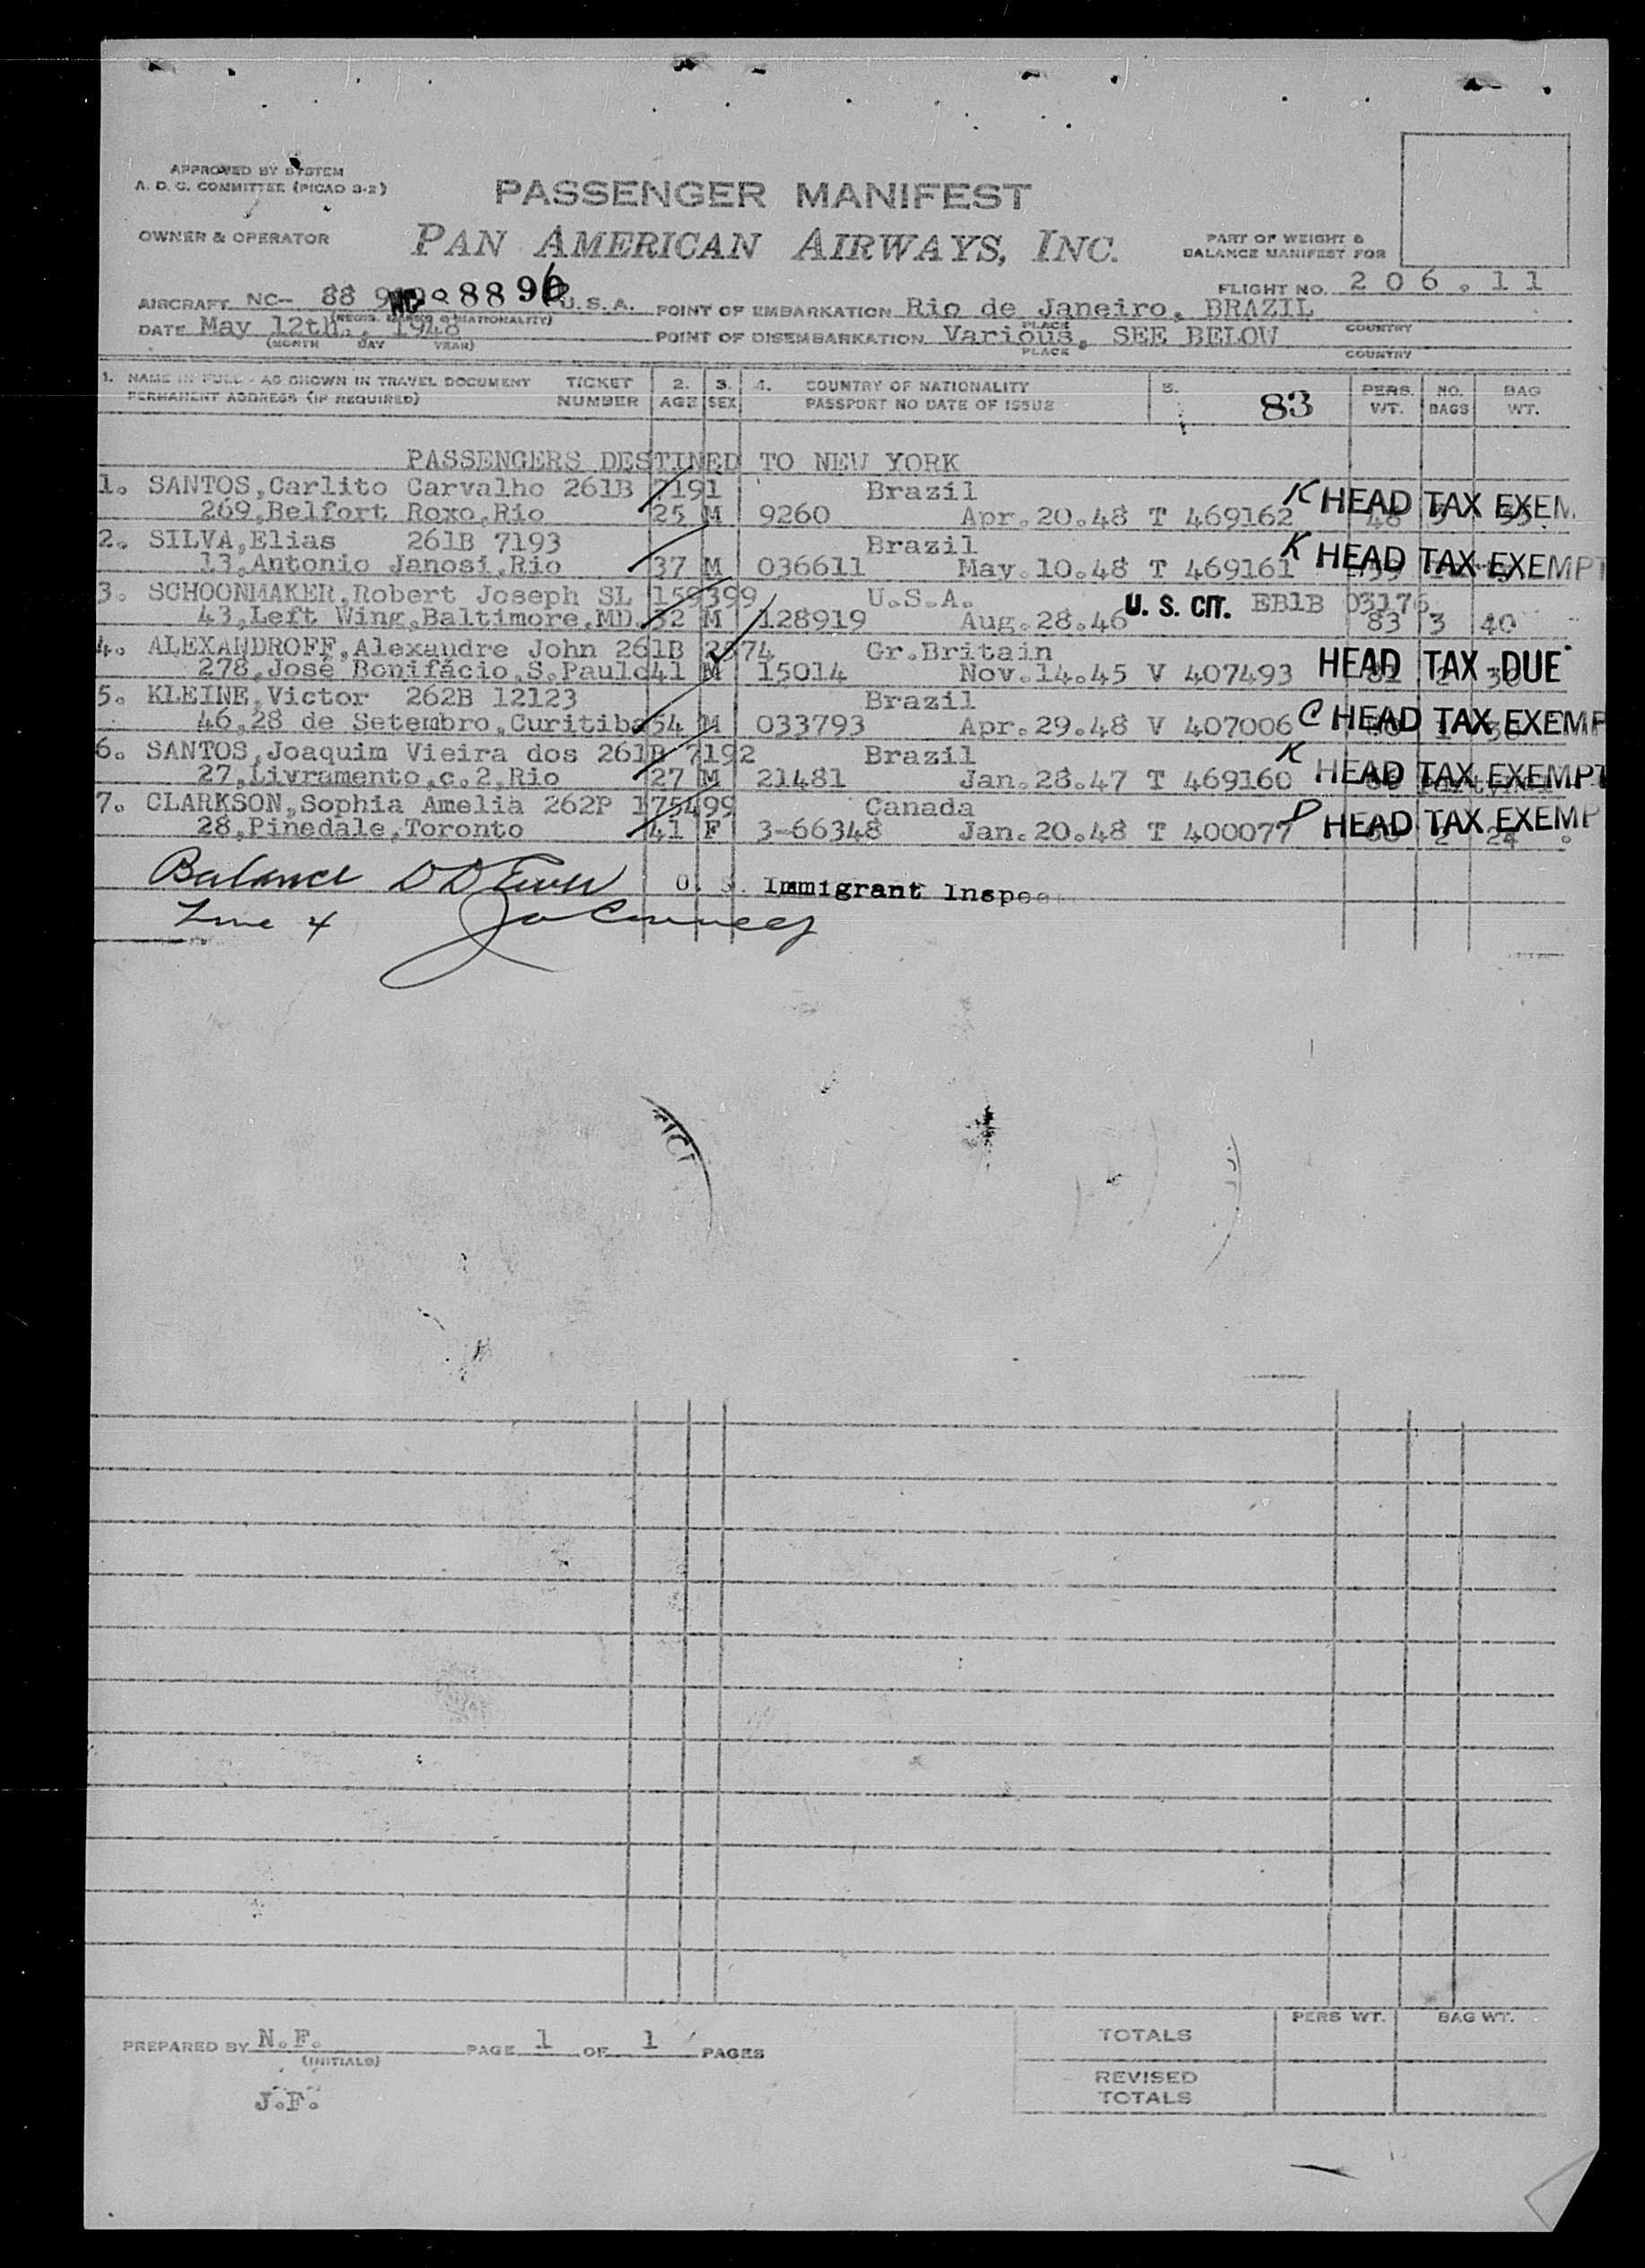 APPROVED BY SYSTEM
A. D. C. COMMITTEE (PICAO 3-2)
PASSENGER MANIFEST
OWNER & OPERATOR
PAN AMERICAN AIRWAYS, INC.
PART OF WEIGHT &
BALANCE MANIFEST FOR
FLIGHT NO. 206.11
AIRCRAFT NC- 88 U.S.A. POINT OF EMBARKATION Rio de Janeiro, BRAZIL
(REGIS. MARKS & NATIONALITY) PLACE COUNTRY
DATE May 12th., 1948 POINT OF DISEMBARKATION Various, SEE BELOW
(MONTH DAY YEAR) PLACE COUNTRY
1. NAME IN FULL - AS SHOWN IN TRAVEL DOCUMENT TICKET 2. 3. 4. COUNTRY OF NATIONALITY 5. 83 PERS. NO. BAG
PERMANENT ADDRESS (IF REQUIRED) NUMBER AGE SEX PASSPORT NO DATE OF ISSUE WT. BAGS WT.
PASSENGERS DESTINED TO NEW YORK
1. SANTOS,Carlito Carvalho 261B 7191 Brazil K HEAD TAX EXEM
269,Belfort Roxo,Rio 25 M 9260 Apr.20.48 T 469162
2. SILVA,Elias 261B 7193 Brazil K HEAD TAX EXEMPT
13,Antonio Janosi,Rio 37 M 036611 May.10.48 T 469161
3. SCHOONMAKER,Robert Joseph SL 159399 U.S.A. U. S. CIT. EB1B 03176
43,Left Wing,Baltimore,MD. 32 M 128919 Aug.28.46 83 3 40
4. ALEXANDROFF,Alexandre John 261B 2574 Gr.Britain HEAD TAX DUE
278,José Bonifácio,S.Paulo 41 M 15014 Nov.14.45 V 407493
5. KLEINE,Victor 262B 12123 Brazil C HEAD TAX EXEMP
46,28 de Setembro,Curitiba 54 M 033793 Apr.29.48 V 407006
6. SANTOS,Joaquim Vieira dos 261B 7192 Brazil K HEAD TAX EXEMPT
27,Livramento,c.2,Rio 27 M 21481 Jan.28.47 T 469160
7. CLARKSON,Sophia Amelia 262P 175499 Canada P HEAD TAX EXEMP
28,Pinedale,Toronto 41 F 3-66348 Jan.20.48 T 400077 2 24
Balance U. S. Immigrant Inspec
Line 4
PREPARED BY N.F. PAGE 1 OF 1 PAGES
(INITIALS)
J.F.
PERS WT. BAG WT.
TOTALS
REVISED
TOTALS